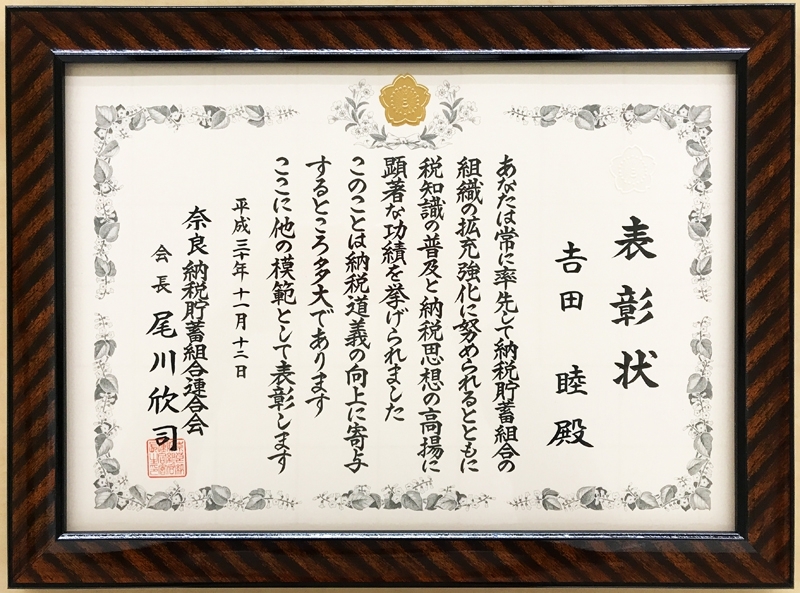 表彰状
𠮷田 睦殿
あなたは常に率先して納税貯蓄組合の
組織の拡充強化に努められるとともに
税知識の普及と納税思想の高揚に
顕著な功績を挙げられました
このことは納税道義の向上に寄与
するところ多大であります
ここに他の模範として表彰します
平成三十年十一月十二日
奈良納税貯蓄組合連合会
会長 尾川欣司